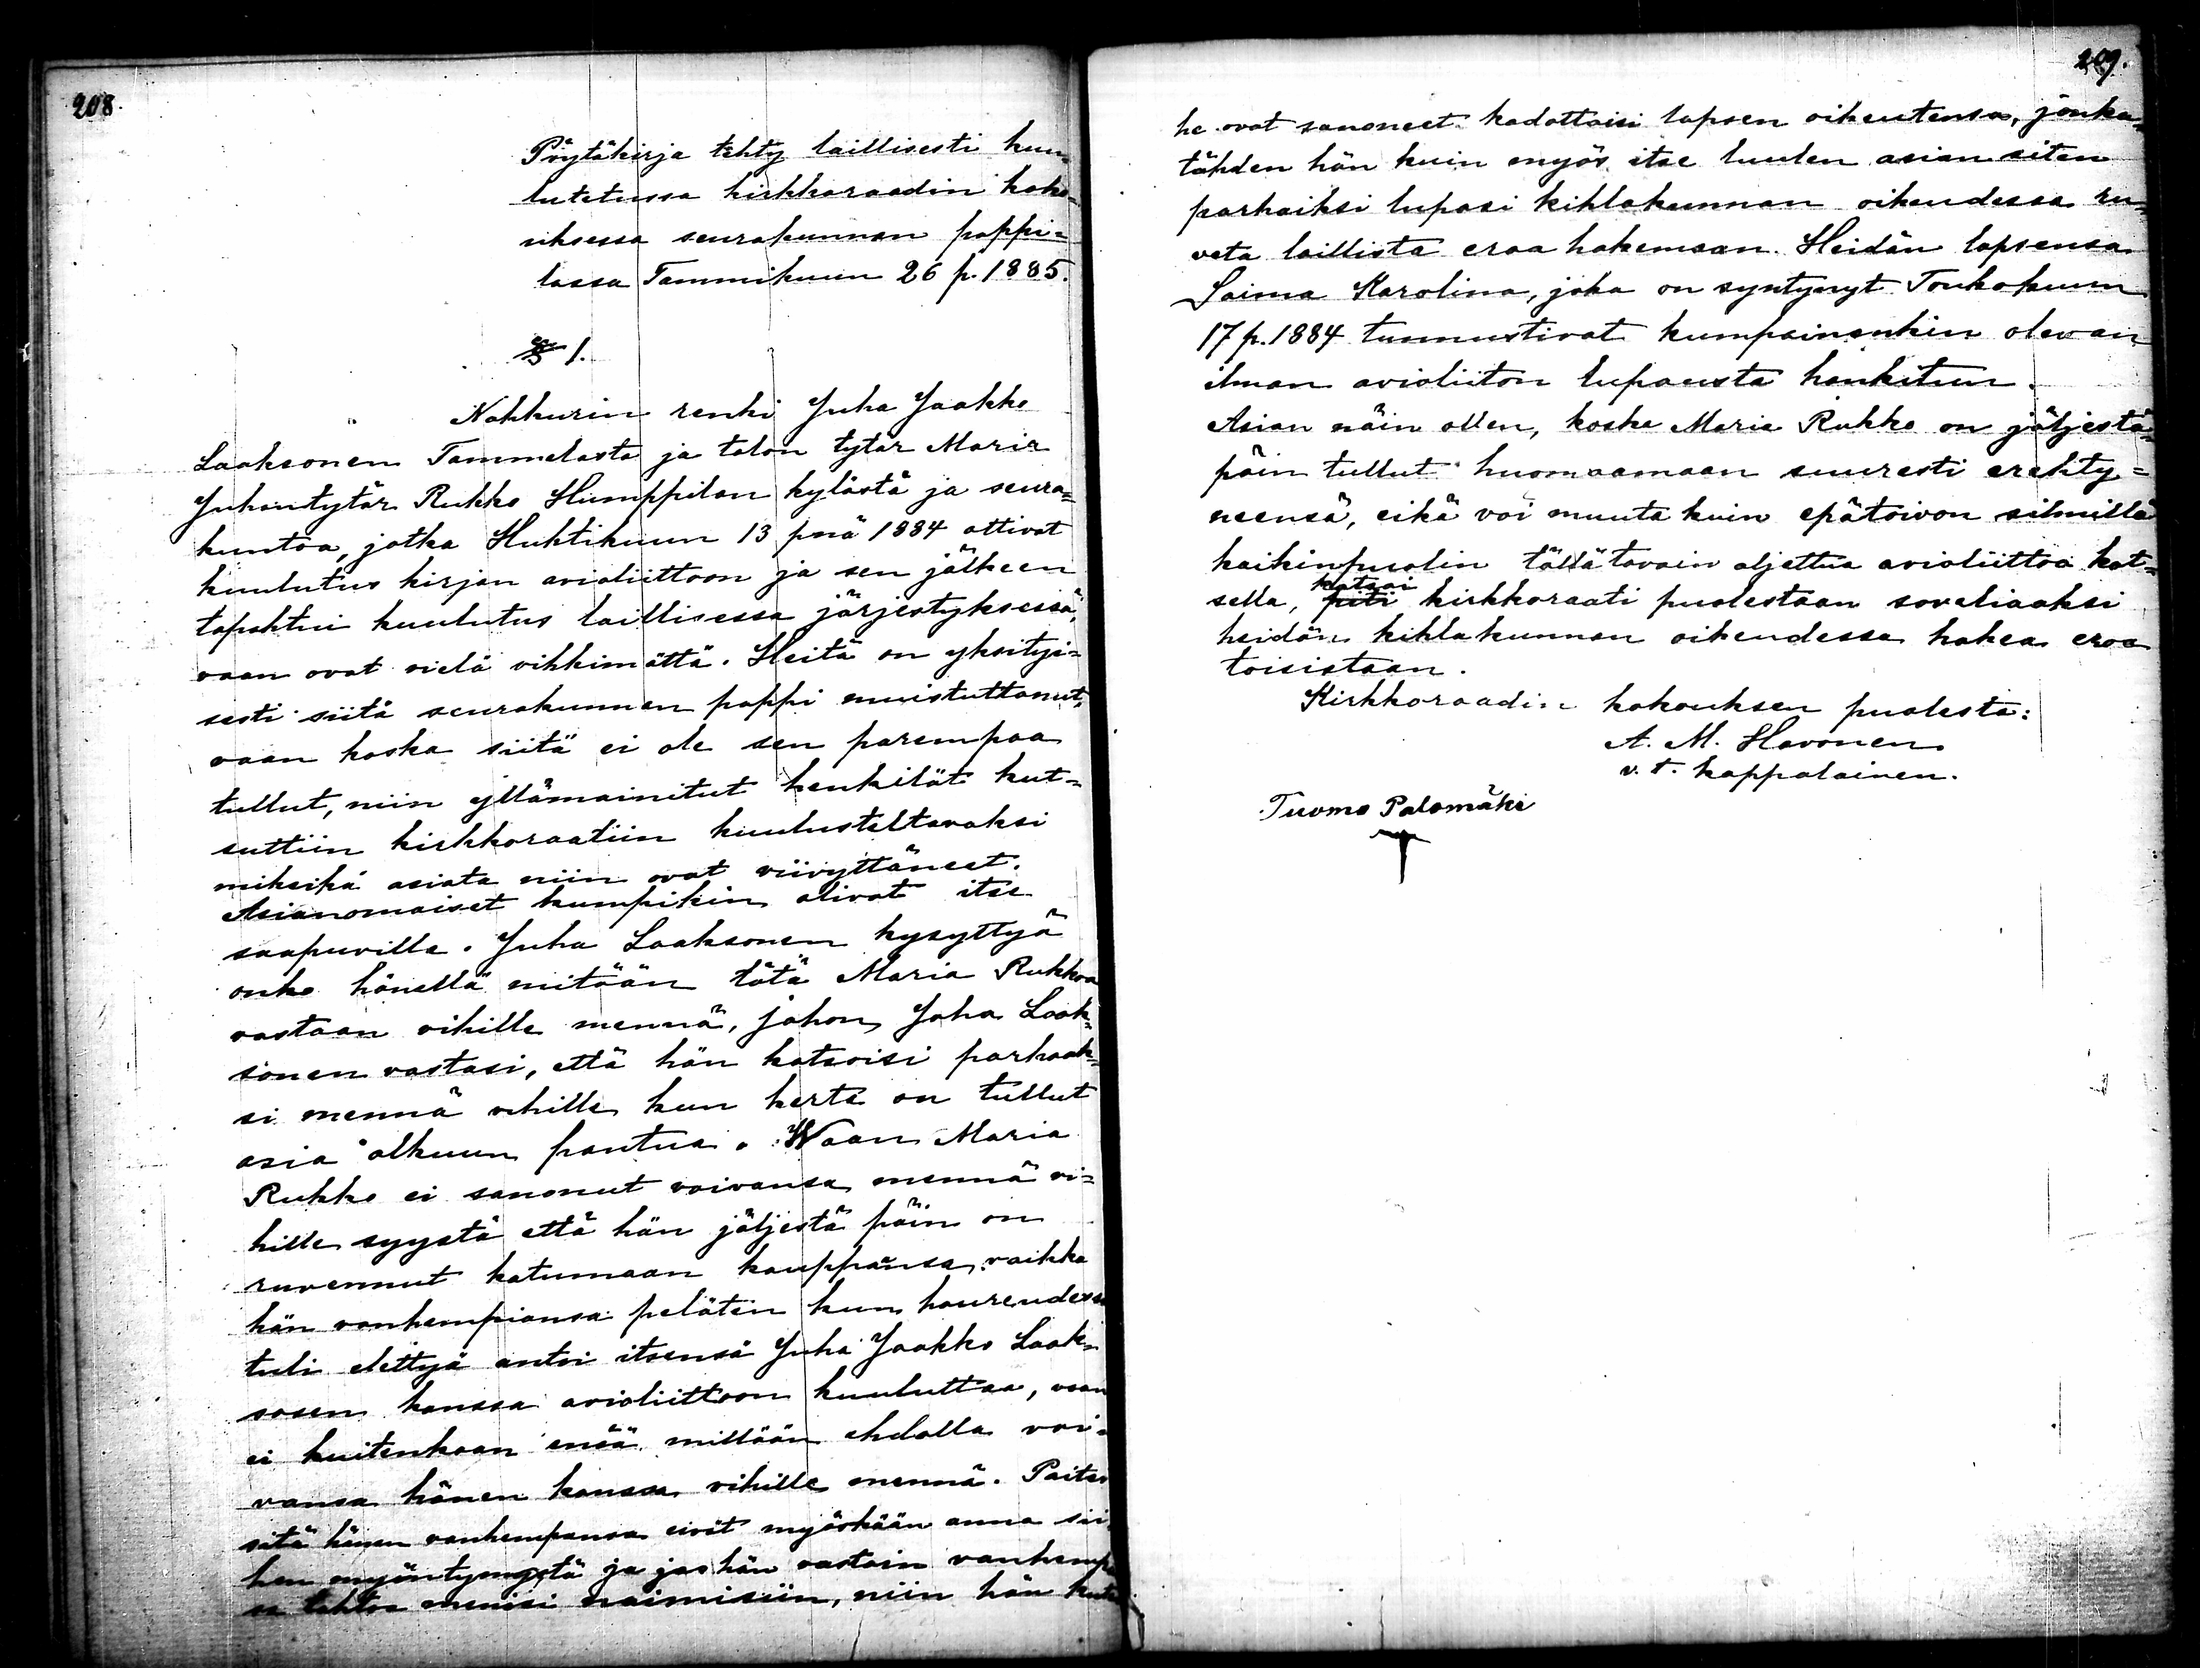 208.
Pöytäkirja tehty laillisesti kuu-
lutetussa kirkkoraadin koko-
uksessa seurakunnan pappi-
lassa Tammikuun 26 p. 1885.
§ 1.
Nahkurin renki Juha Jaakko
Laaksonen Tammelasta ja talon tytär Maria
Juhontytär Rukko Humppilan kylästä ja seura-
kuntaa, jotka Huhtikuun 13 pnä 1884 ottivat
kuulutus kirjan avioliittoon ja sen jälkeen
tapahtui kuulutus laillisessa järjestyksessä,
vaan ovat vielä vihkimättä. Heitä on yksityi-
sesti siitä seurakunnan pappi muistuttanut,
vaan koska siitä ei ole sen parempaa
tullut, niin yllämainitut henkilöt kut-
suttiin kirkkoraatiin kuulusteltavaksi
miksikä asiata niin ovat viivyttäneet.
Asianomaiset kumpikin olivat itse
saapuvilla. Juha Laaksonen kysyttyä
onko hänellä mitään tätä Maria Rukkoa
vastaan vihille mennä, johon Juha Laak-
sonen vastasi, että hän katsoisi parhaak-
si mennä vihille kun kerta on tullut
asia alkuun pantua. Waan Maria
Rukko ei sanonut voivansa mennä vi-
hille syystä että hän jäljestä päin on
ruvennut katumaan kauppansa, vaikka
hän vanhempiansa peläten kun haureudessa
tuli elettyä antoi itsensä Juha Jaakko Laak-
sosen kanssa avioliittoon kuuluttaa, vaan
ei kuitenkaan enää millään ehdolla voi-
vansa hänen kanssa vihille mennä. Paitsi
sitä hänen vanhempansa eivät myöskään anna sii-
hen myöntymystä ja jos hän vastoin vanhemp
tahtoa menisi naimisiin, niin hän
209.
he ovat sanoneet kadottaisi lapsen oikeutensa, jonka-
tähden hän kuin myös itse luulen asian siten
parhaiksi lupasi kihlakunnan oikeudessa ru-
veta laillista eroa hakemaan. Heidän lapsensa
Saima Karolina, joka on syntynyt Toukokuun
17 p. 1884 tunnustivat kumpainenkin olevan
ilman avioliiton lupausta hankitun.
Asian näin ollen, koska Maria Rukko on jäljestä-
päin tullut huomaamaan suuresti erehty-
neensä, eikä voi muuta kuin epätoivon silmillä
kaikinpuolin tällä tavoin aljettua avioliittoa kat-
sella, piti katsoi kirkkoraati puolestaan soveliaaksi
heidän kihlakunnan oikeudessa hakea eroa
toisistaan.
Kirkkoraadin kokouksen puolesta:
A. M. Havonen
v. t. kappalainen.
Tuomo Palomäki